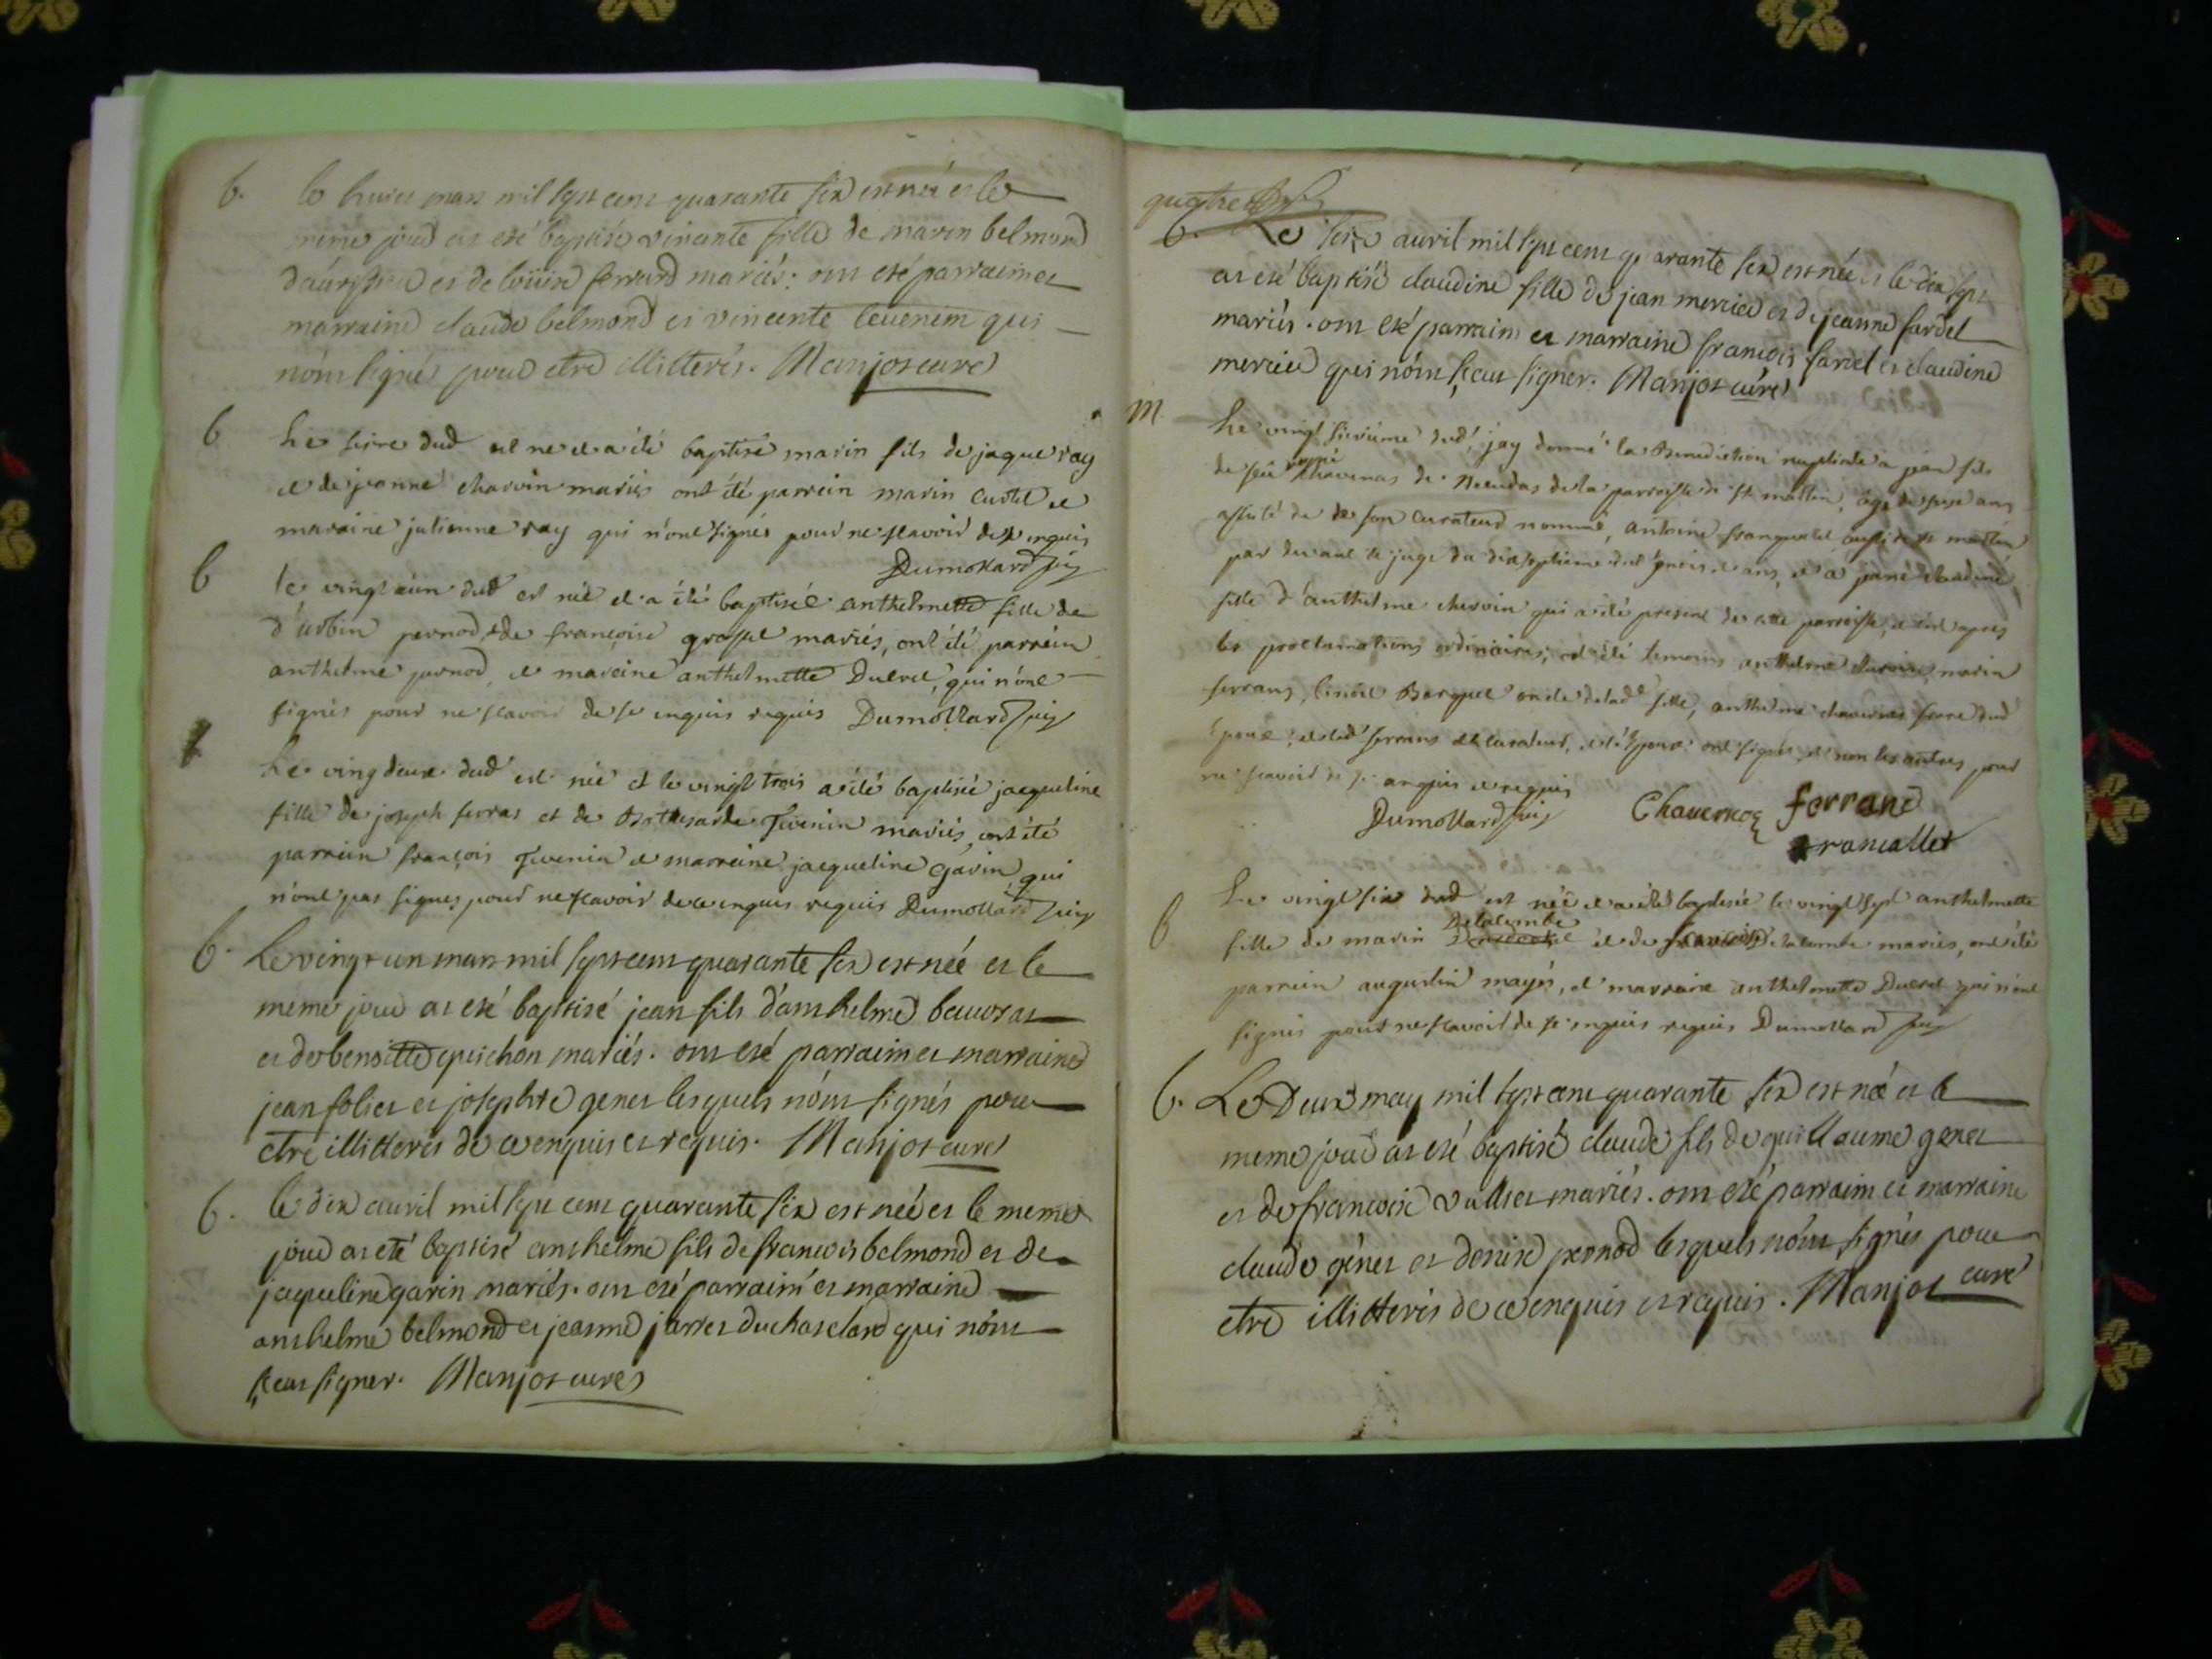 b. le huict mars mil sept cent quarante six est née et le
meme jour at esté baptisé vincente fille de marin belmond
et de louise ferrand mariés: ont esté parrain et
marraine claude belmond et vincente tevenin qui
n'ont signé pour etre illitterés. Manjot curé
b Le seize dud est ne et a été baptisé marin fils de jaque ray
et de jeanne charvin mariés ont été parrein marin curtet et
maraine julienne ray qui n'ont signés pour ne sçavoir de ce enquis
Dumollard
b le vingt un dud est née et a été baptisée anthelmette fille de
d'urbin pernod, et de françoise mariés, ont été parrein
anthelme pernod, et mareine anthelmette Ducret, qui n'ont
signés pour ne scavoir de ce enquis requis Dumollard
Le vingdeux dud est née et le vingt trois a été baptisée jacqueline
fille de joseph ferras et de Tivenin mariés, ont été
parrein françois Tivenin et marreine jacqueline Garin qui
n'ont pas signes pour ne scavoir de ce enquis requis Dumollard
b. Le vingt un mars mil sept cent quarante six est née et le
meme jour at esté baptisé jean fils d'anthelme
et de benoitte guichon mariés. ont esté parrain et marraine
jean foliet et josephte genet lesquels n'ont signés pour
etre illitterés de ce enquis et requis. Manjot curé
b. le dix avril mil sept cent quarante six est née et le meme
jour at eté baptisé anthelme fils de francois belmond et de
jaqueline garin mariés. ont esté parrain et marraine
anthelme belmond et jeanne jarret du chatelard qui n'ont
sceut signer. Manjot curé
b. Le seize avril mil sept cent quarante six est née et le dix sept
at esté baptisé claudine fille de jean mercier et de jeanne fardel
mariés. ont esté parrain et marraine francois fardel et claudine
mercier qui n'ont sceut signer. Manjot curé
m. Le vingt sixième dud, jay donné la Benediction nuptiale a fils
de feu Chavernas de de la parroisse de st martin, agé de ans
assisté de de son curateur nommé, antoine aussi de st martin
par devant le juge du dixseptieme dud
fille d'anthelme chervin qui a été present de cette parroisse, et ce apres
les proclamations ordinaires, ont été temoins anthelme chervin marin
ferrans, oncle de lad fille, anthelme chavernas frere dud
époux, et led ferrans et curateur, et l'époux ont signés, et non les autres pour
ne scavoir de ce enquis et requis
Dumollard Chavernas ferrand
francallet
b Le vingt six dud est née et a été baptisée le vingt sept anthelmette
Delacombe
fille de marin et de françoise delacombe mariés, ont été
parrein augustin mayer, et marreine anthelmette Ducret qui n'ont
signés pour ne scavoir de ce enquis requis Dumollard
b. Le Deux may mil sept cent quarante six est né et le
meme jour at esté baptisé claude fils de guillaume genet
et de francoise vulliet mariés. ont esté parrain et marraine
claude génet et denise pernod lesquels n'ont signés pour
etre illitterés de ce enquis et requis. Manjot curé